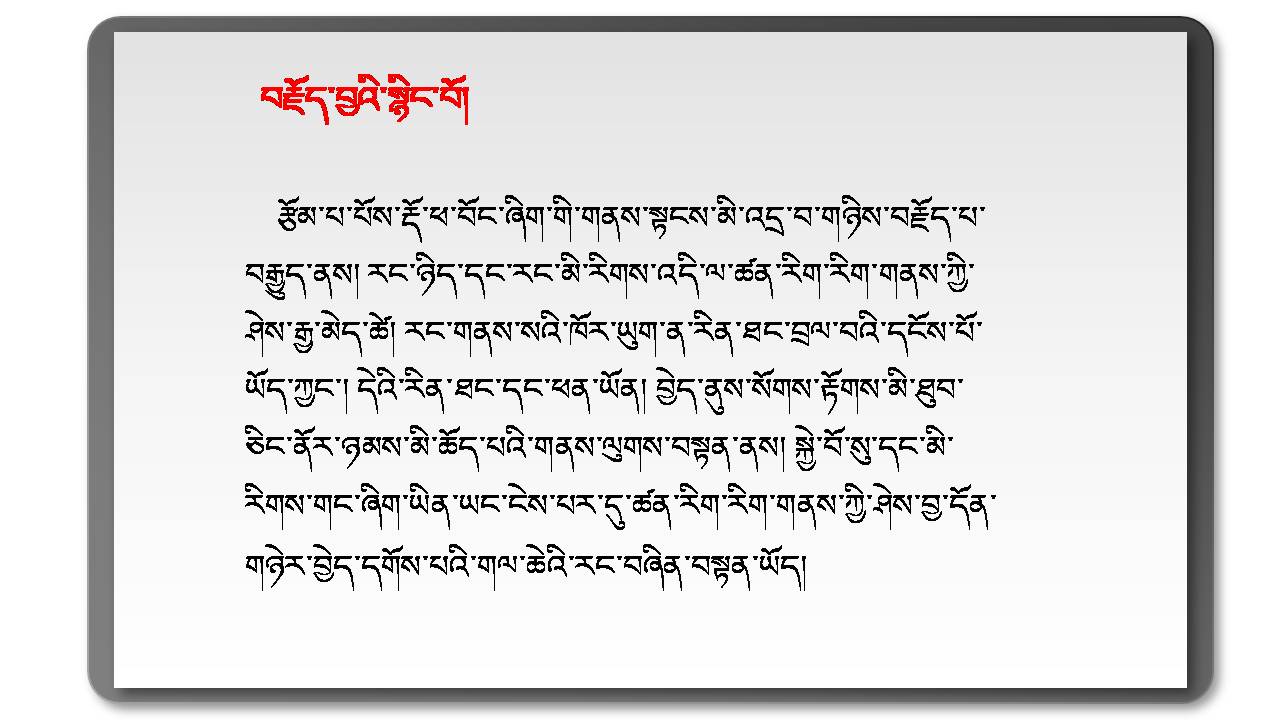 བརྗོད་བྱའི་སྙིང་བོ།
རྩོམ་པ་པོས་རྡོ་ཕ་བོང་ཞིག་གི་གནས་སྟངས་མི་འདྲ་བ་གཉིས་བརྗོད་པ་
བརྒྱུད་ནས། རང་ཉིད་དང་རང་མི་རིགས་འདི་ལ་ཚན་རིག་རིག་གནས་ཀྱི་
ཤེས་རྒྱ་མེད་ཚེ། རང་གནས་སའི་ཁོར་ཡུག་ན་རིན་ཐང་བྲལ་བའི་དངོས་པོ་
ཡོད་ཀྱང་། དེའི་རིན་ཐང་དང་ཕན་ཡོན། བྱེད་ནུས་སོགས་རྟོགས་མི་ཐུབ་
ཅིང་ནོར་ཉམས་མི་ཆོད་པའི་གནས་ལུགས་བསྟན་ནས། སྐྱེ་བོ་སུ་དང་མི་
རིགས་གང་ཞིག་ཡིན་ཡང་ངེས་པར་དུ་ཚན་རིག་རིག་གནས་ཀྱི་ཤེས་བྱ་དོན་
གཉེར་བྱེད་དགོས་པའི་གལ་ཆེའི་རང་བཞིན་བསྟན་ཡོད།